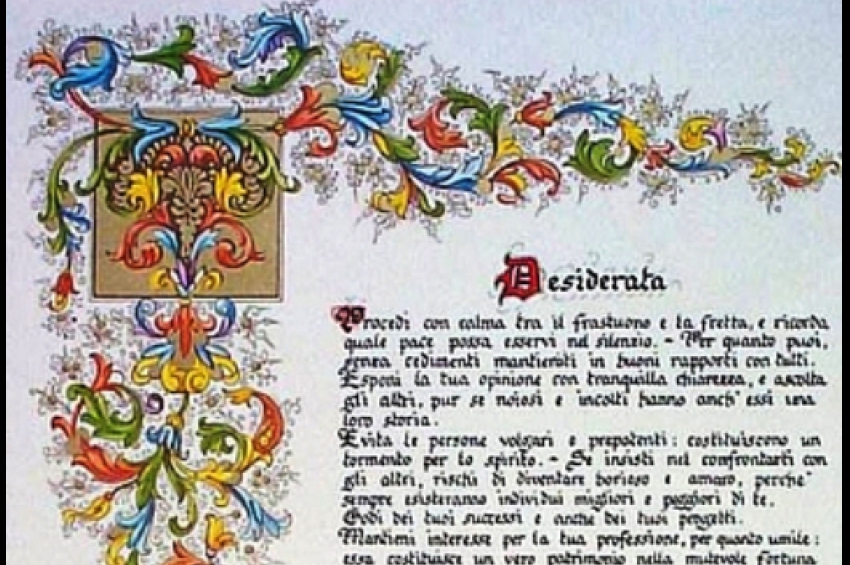 Desiderata
Procedi con calma tra il frastuono e la fretta, e ricorda
quale pace possa esservi nel silenzio. - Per quanto puoi,
senza cedimenti mantieniti in buoni rapporti con tutti.
Esponi la tua opinione con tranquilla chiarezza, e ascolta
gli altri, pur se noiosi e incolti hanno anch'essi una
loro storia.
Evita le persone volgari e prepotenti: costituiscono un
tormento per lo spirito. - Se insisti nel confrontarti con
gli altri, rischi di diventare borioso e amaro, perche'
sempre esisteranno individui migliori e peggiori di te.
Godi dei tuoi successi e anche dei tuoi progetti.
Mantieni interesse per la tua professione, per quanto umile:
essa costituisce un vero patrimonio nella mutevole fortuna